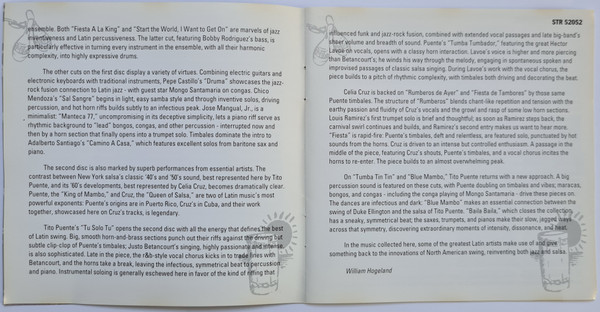 ensemble. Both "Fiesta A La King" and "Start the World, I Want to Get On" are marvels of jazz
inventiveness and Latin percussiveness. The latter cut, featuring Bobby Rodriguez's bass, is
particularly effective in turning every instrument in the ensemble, with all their harmonic
complexity, into highly expressive drums.
The other cuts on the first disc display a variety of virtues. Combining electric guitars and
electronic keyboards with traditional instruments, Pepe Castillo's "Druma" showcases the jazz-
rock fusion connection to Latin jazz - with guest star Mongo Santamaria on congas. Chico
Mendoza's "Sal Sangre" begins in light, easy samba style and through inventive solos, driving
percussion, and hot horn riffs builds subtly to an infectious peak. Jose Mangual, Jr., is a
minimalist: "Manteca 77," uncompromising in its deceptive simplicity, lets a piano riff serve as
rhythmic background to "lead" bongos, congas, and other percussion - interrupted now and
then by a horn section that finally opens into a trumpet solo. Timbales dominate the intro to
Adalberto Santiago's "Camino A Casa," which features excellent solos from baritone sax and
piano.
The second disc is also marked by superb performances from essential artists. The
contrast between New York salsa's classic '40's and '50's sound, best represented here by Tito
Puente, and its '60's developments, best represented by Celia Cruz, becomes dramatically clear.
Puente, the "King of Mambo," and Cruz, the "Queen of Salsa," are two of Latin music's most
powerful exponents: Puente's origins are in Puerto Rico, Cruz's in Cuba, and their work
together, showcased here on Cruz's tracks, is legendary.
Tito Puente's "Tu Solo Tu" opens the second disc with all the energy that defines the best
of Latin swing. Big, smooth horn-and-brass sections punch out their riffs against the driving but
subtle clip-clop of Puente's timbales; Justo Betancourt's singing, highly passionate and intense
is also sophisticated. Late in the piece, the r&b-style vocal chorus kicks in to trade lines with
Betancourt, and the horns take a break, leaving the infectious, symmetrical beat to percussion
and piano. Instrumental soloing is generally eschewed here in favor of the kind of riffing that
STR 52052
influenced funk and jazz-rock fusion, combined with extended vocal passages and late big-band's
sheer volume and breadth of sound. Puente's "Tumba Tumbador," featuring the great Hector
Lavoe on vocals, opens with a classy horn interaction. Lavoe's voice is higher and more piercing
than Betancourt's; he winds his way through the melody, engaging in spontaneous spoken and
improvised passages of classic salsa singing. During Lavoe's work with the vocal chorus, the
piece builds to a pitch of rhythmic complexity, with timbales both driving and decorating the beat.
Celia Cruz is backed on "Rumberos de Ayer" and "Fiesta de Tambores" by those same
Puente timbales. The structure of "Rumberos" blends chant-like repetition and tension with the
earthy passion and fluidity of Cruz's vocals and the growl and rasp of some low horn sections.
Louis Ramirez's first trumpet solo is brief and thoughtful; as soon as Ramirez steps back, the
carnival swirl continues and builds, and Ramirez's second entry makes us want to hear more.
"Fiesta" is rapid-fire: Puente's timbales, deft and relentless, are featured solo, punctuated by hot
sounds from the horns. Cruz is driven to an intense but controlled enthusiasm. A passage in the
middle of the piece, featuring Cruz's shouts, Puente's timbales, and a vocal chorus incites the
horns to re-enter. The piece builds to an almost overwhelming peak.
On "Tumba Tin Tin" and "Blue Mambo," Tito Puente returns with a new approach. A big
percussion sound is featured on these cuts, with Puente doubling on timbales and vibes; maracas,
bongos, and congas - including the conga playing of Mongo Santamaria - drive these pieces on.
The dances are infectious and dark: "Blue Mambo" makes an essential connection between the
swing of Duke Ellington and the salsa of Tito Puente. "Baila Baila," which closes the collection,
has a sneaky, symmetrical beat; the saxes, trumpets, and pianos make their slow, jagged ways
across that symmetry, discovering extraordinary moments of intensity, dissonance, and heat.
In the music collected here, some of the greatest Latin artists make use of and give
something back to the innovations of North American swing, reinventing both jazz and salsa.
William Hogeland